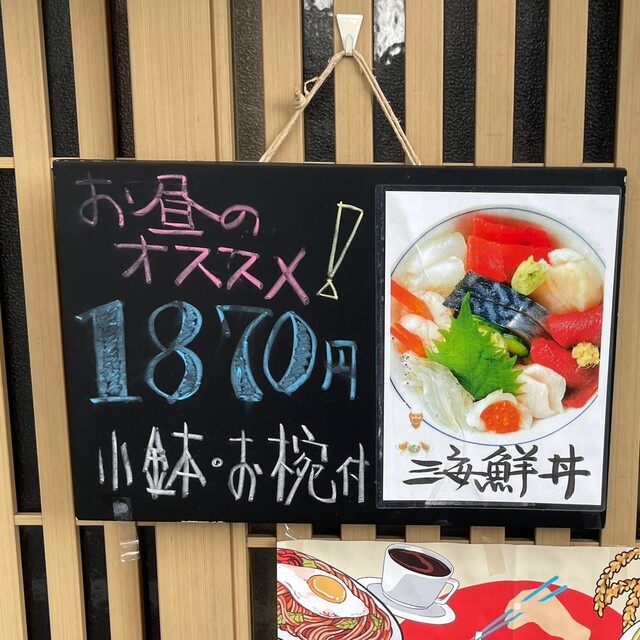 お昼の
オススメ!
1870円
小鉢・お椀付
海鮮丼